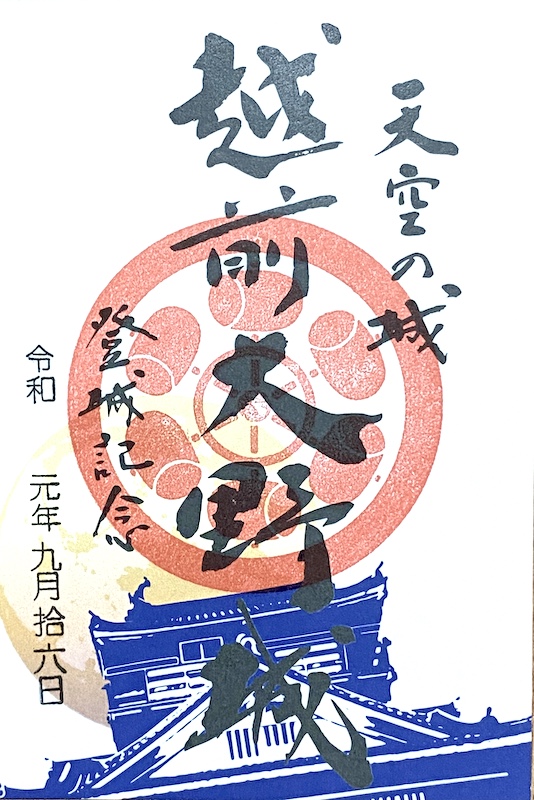 天空の城
越前大野城
登城記念
令和 元年 九月拾六日